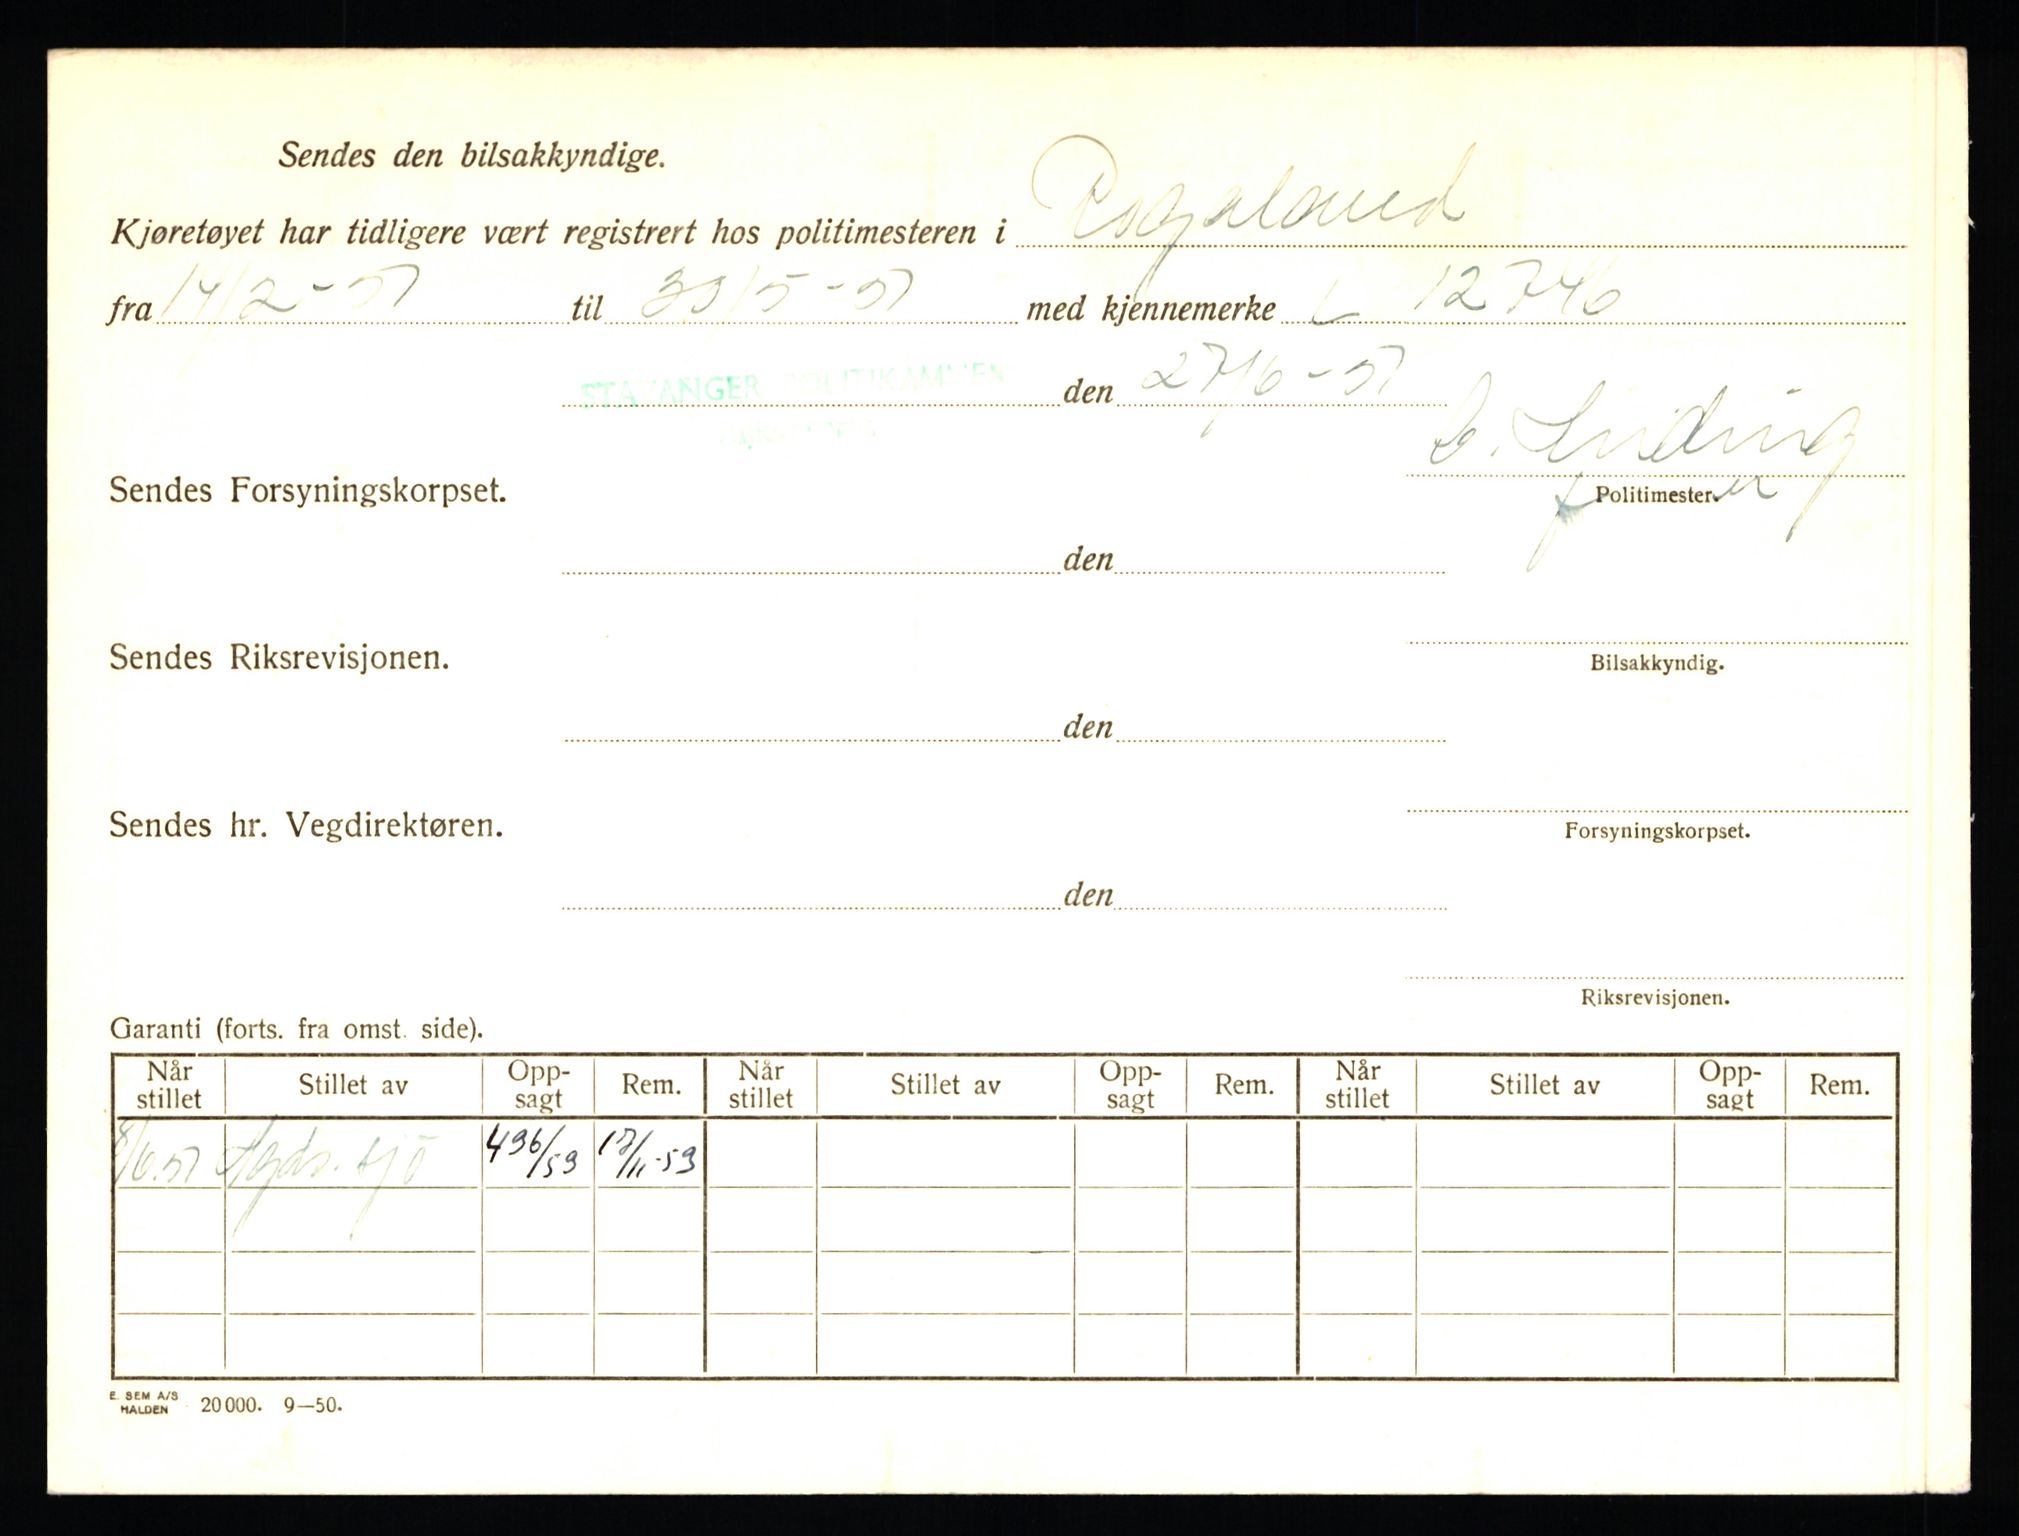 Sendes den bilsakkyndige.
Kjøretøyet har tidligere vært registrert hos politimesteren i Rogaland
fra 14/2-51 til 30/5-51 med kjennemerke L 12746
STAVANGER POLITIKAMMER den 27/6-51
Sendes Forsyningskorpset.
Politimester.
den
Sendes Riksrevisjonen.
Bilsakkyndig.
den
Sendes hr. Vegdirektøren.
Forsyningskorpset.
den
Riksrevisjonen.
Garanti (forts. fra omst. side).
Når stillet Stillet av Opp-sagt Rem. Når stillet Stillet av Opp-sagt Rem. Når stillet Stillet av Opp-sagt Rem.
8/6.51 Agds. sjö 496/59 17/11-59
E. SEM A/S HALDEN 20 000. 9—50.